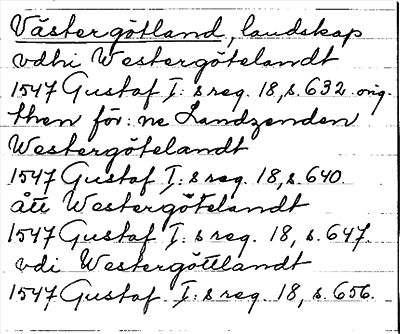 Västergötland, landskap
vdhi Westergötelandt
1547 Gustaf I:s reg. 18, s. 632. orig.
then för:ne Landzenden
Westergötelandt
1547 Gustaf I:s reg. 18, s. 640.
ått Westergötelandt
1547 Gustaf I:s reg. 18, s. 647.
vdi Westergöttlandt
1547 Gustaf I:s reg. 18, s. 656.